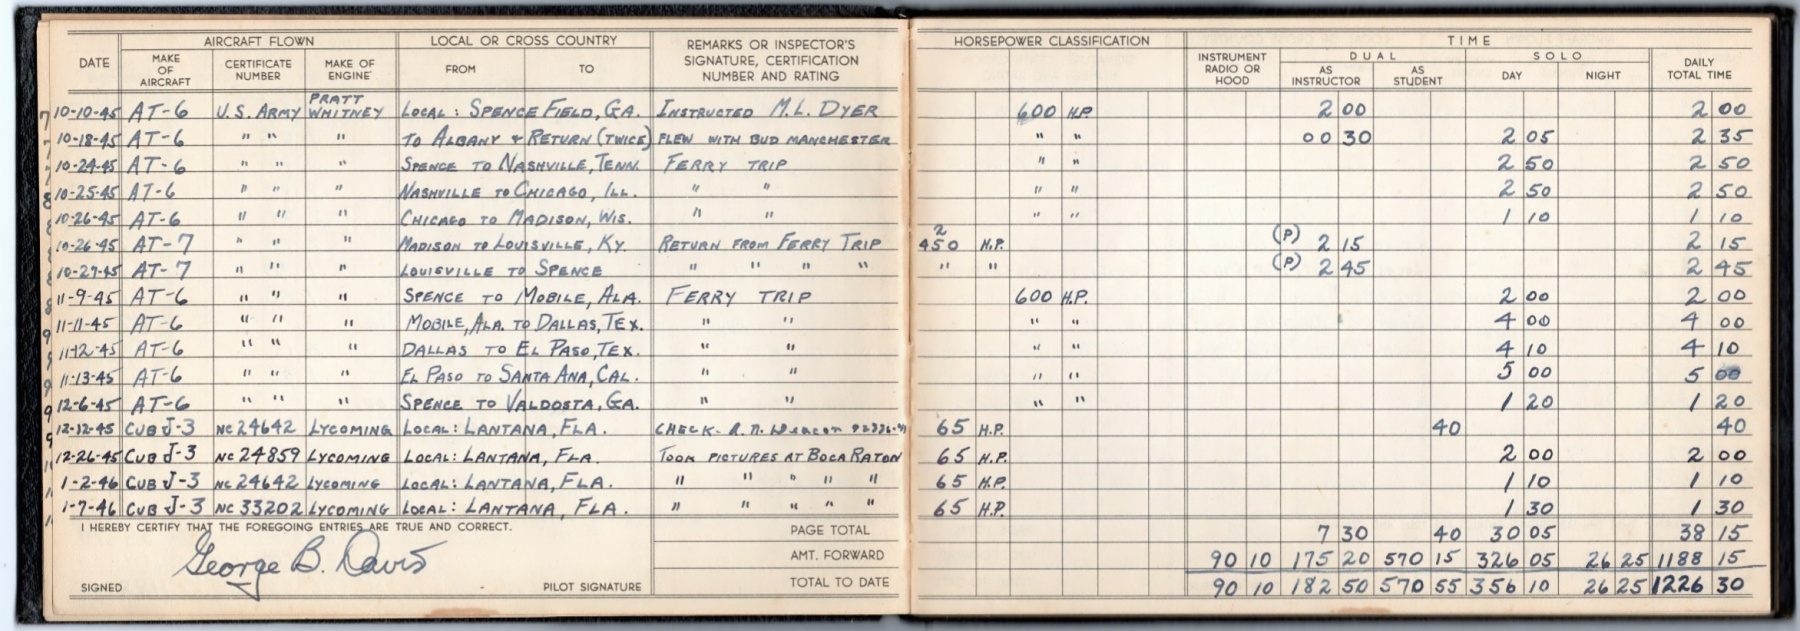 AIRCRAFT FLOWN LOCAL OR CROSS COUNTRY REMARKS OR INSPECTOR'S SIGNATURE, CERTIFICATION NUMBER AND RATING HORSEPOWER CLASSIFICATION TIME
DATE MAKE OF AIRCRAFT CERTIFICATE NUMBER MAKE OF ENGINE FROM TO INSTRUMENT RADIO OR HOOD DUAL AS INSTRUCTOR AS STUDENT SOLO DAY NIGHT DAILY TOTAL TIME
10-10-45 AT-6 U.S. ARMY PRATT WHITNEY LOCAL: SPENCE FIELD, GA. INSTRUCTED M.L. DYER 600 H.P. 2 00 2 00
10-18-45 AT-6 " " " TO ALBANY & RETURN (TWICE) FLEW WITH BUD MANCHESTER " " 00 30 2 05 2 35
10-24-45 AT-6 " " " SPENCE TO NASHVILLE, TENN. FERRY TRIP " " 2 50 2 50
10-25-45 AT-6 " " " NASHVILLE TO CHICAGO, ILL. " " " " 2 50 2 50
10-26-45 AT-6 " " " CHICAGO TO MADISON, WIS. " " " " 1 10 1 10
10-26-45 AT-7 " " " MADISON TO LOUISVILLE, KY. RETURN FROM FERRY TRIP 2 450 H.P. (P) 2 15 2 15
10-27-45 AT-7 " " " LOUISVILLE TO SPENCE " " " " " " (P) 2 45 2 45
11-9-45 AT-6 " " " SPENCE TO MOBILE, ALA. FERRY TRIP 600 H.P. 2 00 2 00
11-11-45 AT-6 " " " MOBILE, ALA. TO DALLAS, TEX. " " " " 4 00 4 00
11-12-45 AT-6 " " " DALLAS TO EL PASO, TEX. " " " " 4 10 4 10
11-13-45 AT-6 " " " EL PASO TO SANTA ANA, CAL. " " " " 5 00 5 00
12-6-45 AT-6 " " " SPENCE TO VALDOSTA, GA. " " " " 1 20 1 20
12-12-45 CUB J-3 NC 24642 LYCOMING LOCAL: LANTANA, FLA. CHECK- R.N. 65 H.P. 40 40
12-26-45 CUB J-3 NC 24859 LYCOMING LOCAL: LANTANA, FLA. TOOK PICTURES AT BOCA RATON 65 H.P. 2 00 2 00
1-2-46 CUB J-3 NC 24642 LYCOMING LOCAL: LANTANA, FLA. " " " " " 65 H.P. 1 10 1 10
1-7-46 CUB J-3 NC 33202 LYCOMING LOCAL: LANTANA, FLA. " " " " " 65 H.P. 1 30 1 30
I HEREBY CERTIFY THAT THE FOREGOING ENTRIES ARE TRUE AND CORRECT. PAGE TOTAL 7 30 40 30 05 38 15
George B. Davis AMT. FORWARD 90 10 175 20 570 15 326 05 26 25 1188 15
SIGNED PILOT SIGNATURE TOTAL TO DATE 90 10 182 50 570 55 356 10 26 25 1226 30